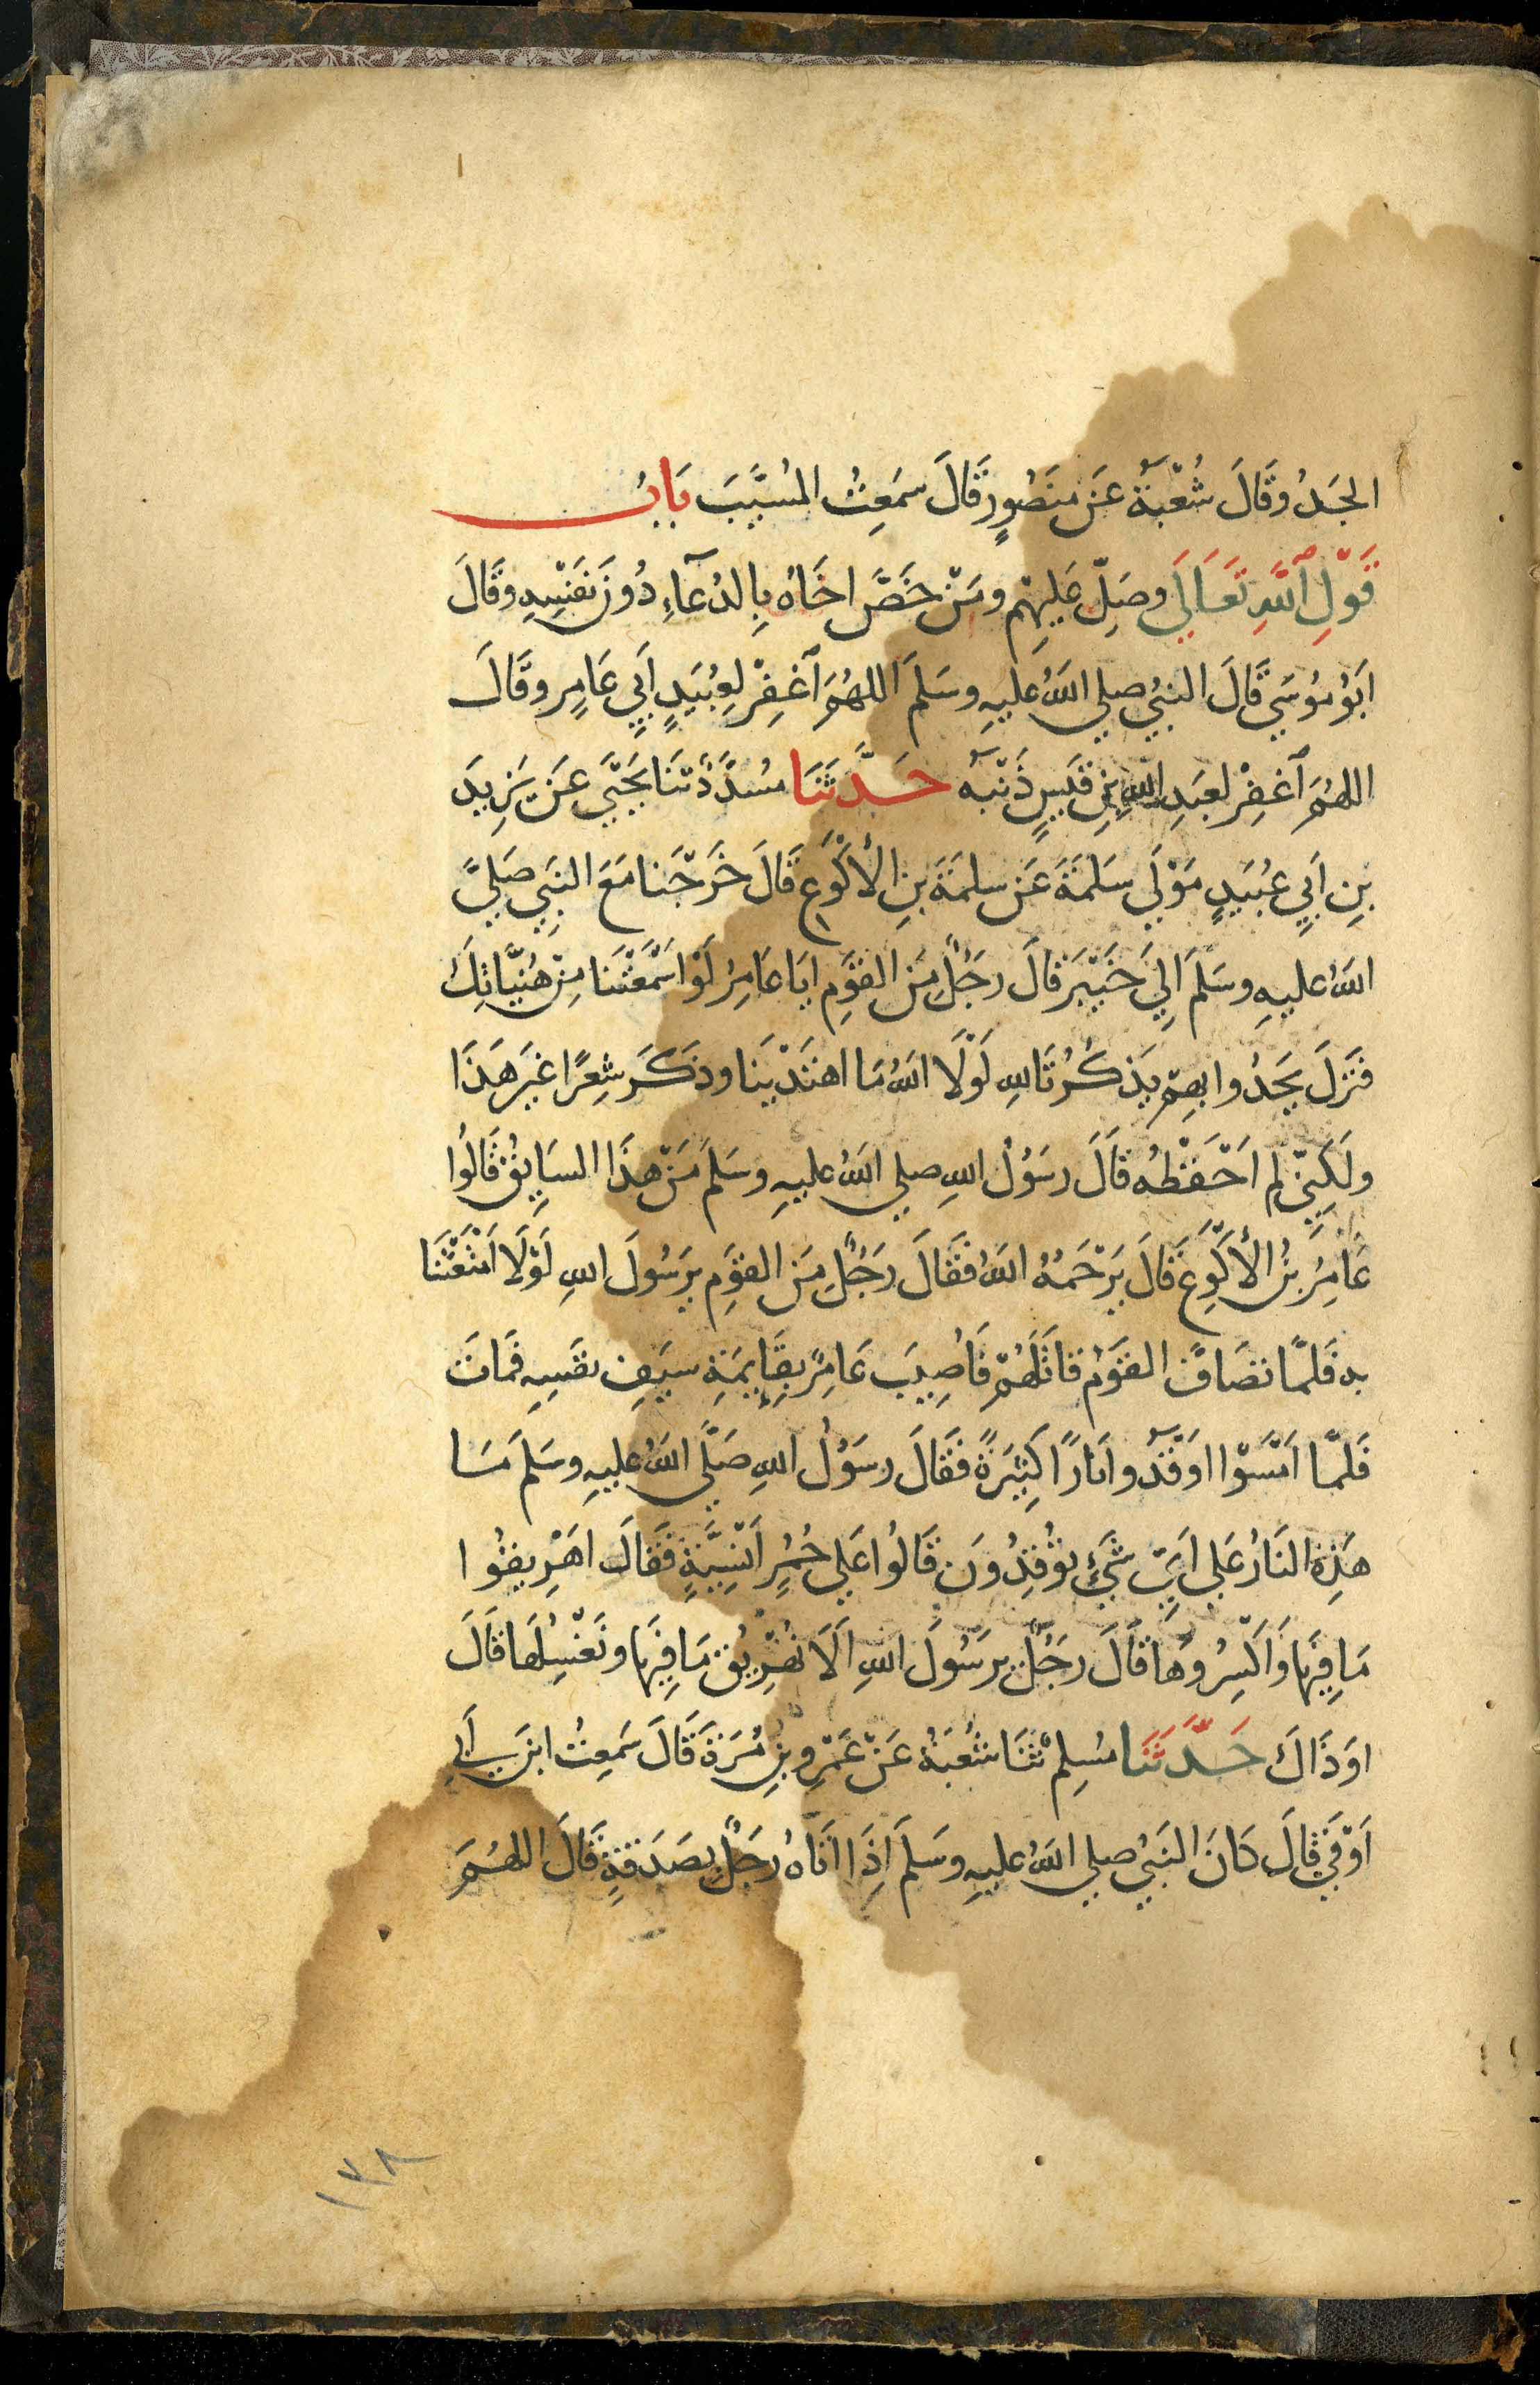 الجَدُ وقَالَ شُعْبَةُ عَن مَنصُورٍ قَالَ سَمِعتُ المُسَيَّبَ بَابُ
قَوْلِ ٱللَّهِ تَعَالَي وصَلِّ عَلَيهِم ومَنْ خَصَّ اخَاهُ بِالدُعَآءِ دُونَ نَفسِهِ وقَالَ
ابَوُ مُوسَي قَالَ النبيُ صلي اللهُ عليهِ وسَلمَ اللهُمَ ٱغفِرْ لِعُبَيدٍ اَبِي عَامِرٍ وقَالَ
اللهُمَ ٱغفِرْ لعَبدِ اللهِ بنِ قَيسٍ ذَنْبَه حَدَّثَنَا مُسَدَّدٌ ثنَا يَحيَي عَن يَزِيدَ
بنِ اَبِي عُبَيدٍ مَوْلَي سَلَمَةَ عَن سلمَةَ بنِ الأَكْوَعِ قَالَ خَرَجنا مَعَ النَبيِ صَليَ
اللهُ عليهِ وسَلمَ اِلَي خَيْبَرَ قالَ رجَلٌ مِنَ القَومِ ايَا عَامِرُ لَوْ اسْمَعْتَنا مِنْ هُنَيَّاتِكَ
فنَزَلَ يَحدُوا بهِم يَذكُرُ تَاللهِ لَوْلَا اللهُ مَا اهتَدَيْنَا وذَكَرَ شِعرًا غَيرَ هَذَا
ولَكِنِّي لم اَحْفَظْهُ قالَ رسَوُلُ اللهِ صلي اللهُ عليهِ وسَلمَ مَنْ هذَا السَايِقُ قَالُوا
عَامِرُ بنُ الأَكْوَعِ قالَ يَرْحَمُهُ اللهُ فقَالَ رَجَلٌ مِنَ القَومِ يرَسُولَ اللهِ لَوْلَا اَمْتَعْتَنَا
به فَلمَّا تصَافَّ القَوَمُ قاتَلَهُمْ فَاُصِيبَ عَامِرٌ بقَايِمَةِ سيَفِ نفسِهِ فمَاتَ
فَلمَّا اَمْسَوْا اوَقَدُوا نَارًا كَثِيرَةً فقَالَ رسَوُلُ اللهِ صَلَّي اللهُ عليهِ وسَلمَ مَا
هَذِهِ النَارُ عَلي اَيِّ شَيْءٍ توُقِدُونَ قَالُوا عَلي حُمُرٍ اِنسِيَّةٍ فقَالَ اهَرِيقُوا
مَا فِيَها وَاكسِرُوهَا قَالَ رجَلٌ يرَسُولَ اللهِ اَلَا نُهَرِيُق مَا فِيَها ونَغْسِلُهَا قَالَ
اوَ ذَاكَ حَدَّثَنَا مُسِلمٌ ثنَا شُعبَةُ عَنْ عَمْرِو بنِ مُرَةَ قَالَ سَمِعتُ ابنَ اَبي
اَوْفَي قَالَ كَانَ النَبيُ صلي اللهُ عليهِ وسَلمَ اِذَا اتَاهُ رجَلٌ بصَدَقةٍ قَالَ اللهُمَ
١٧٨